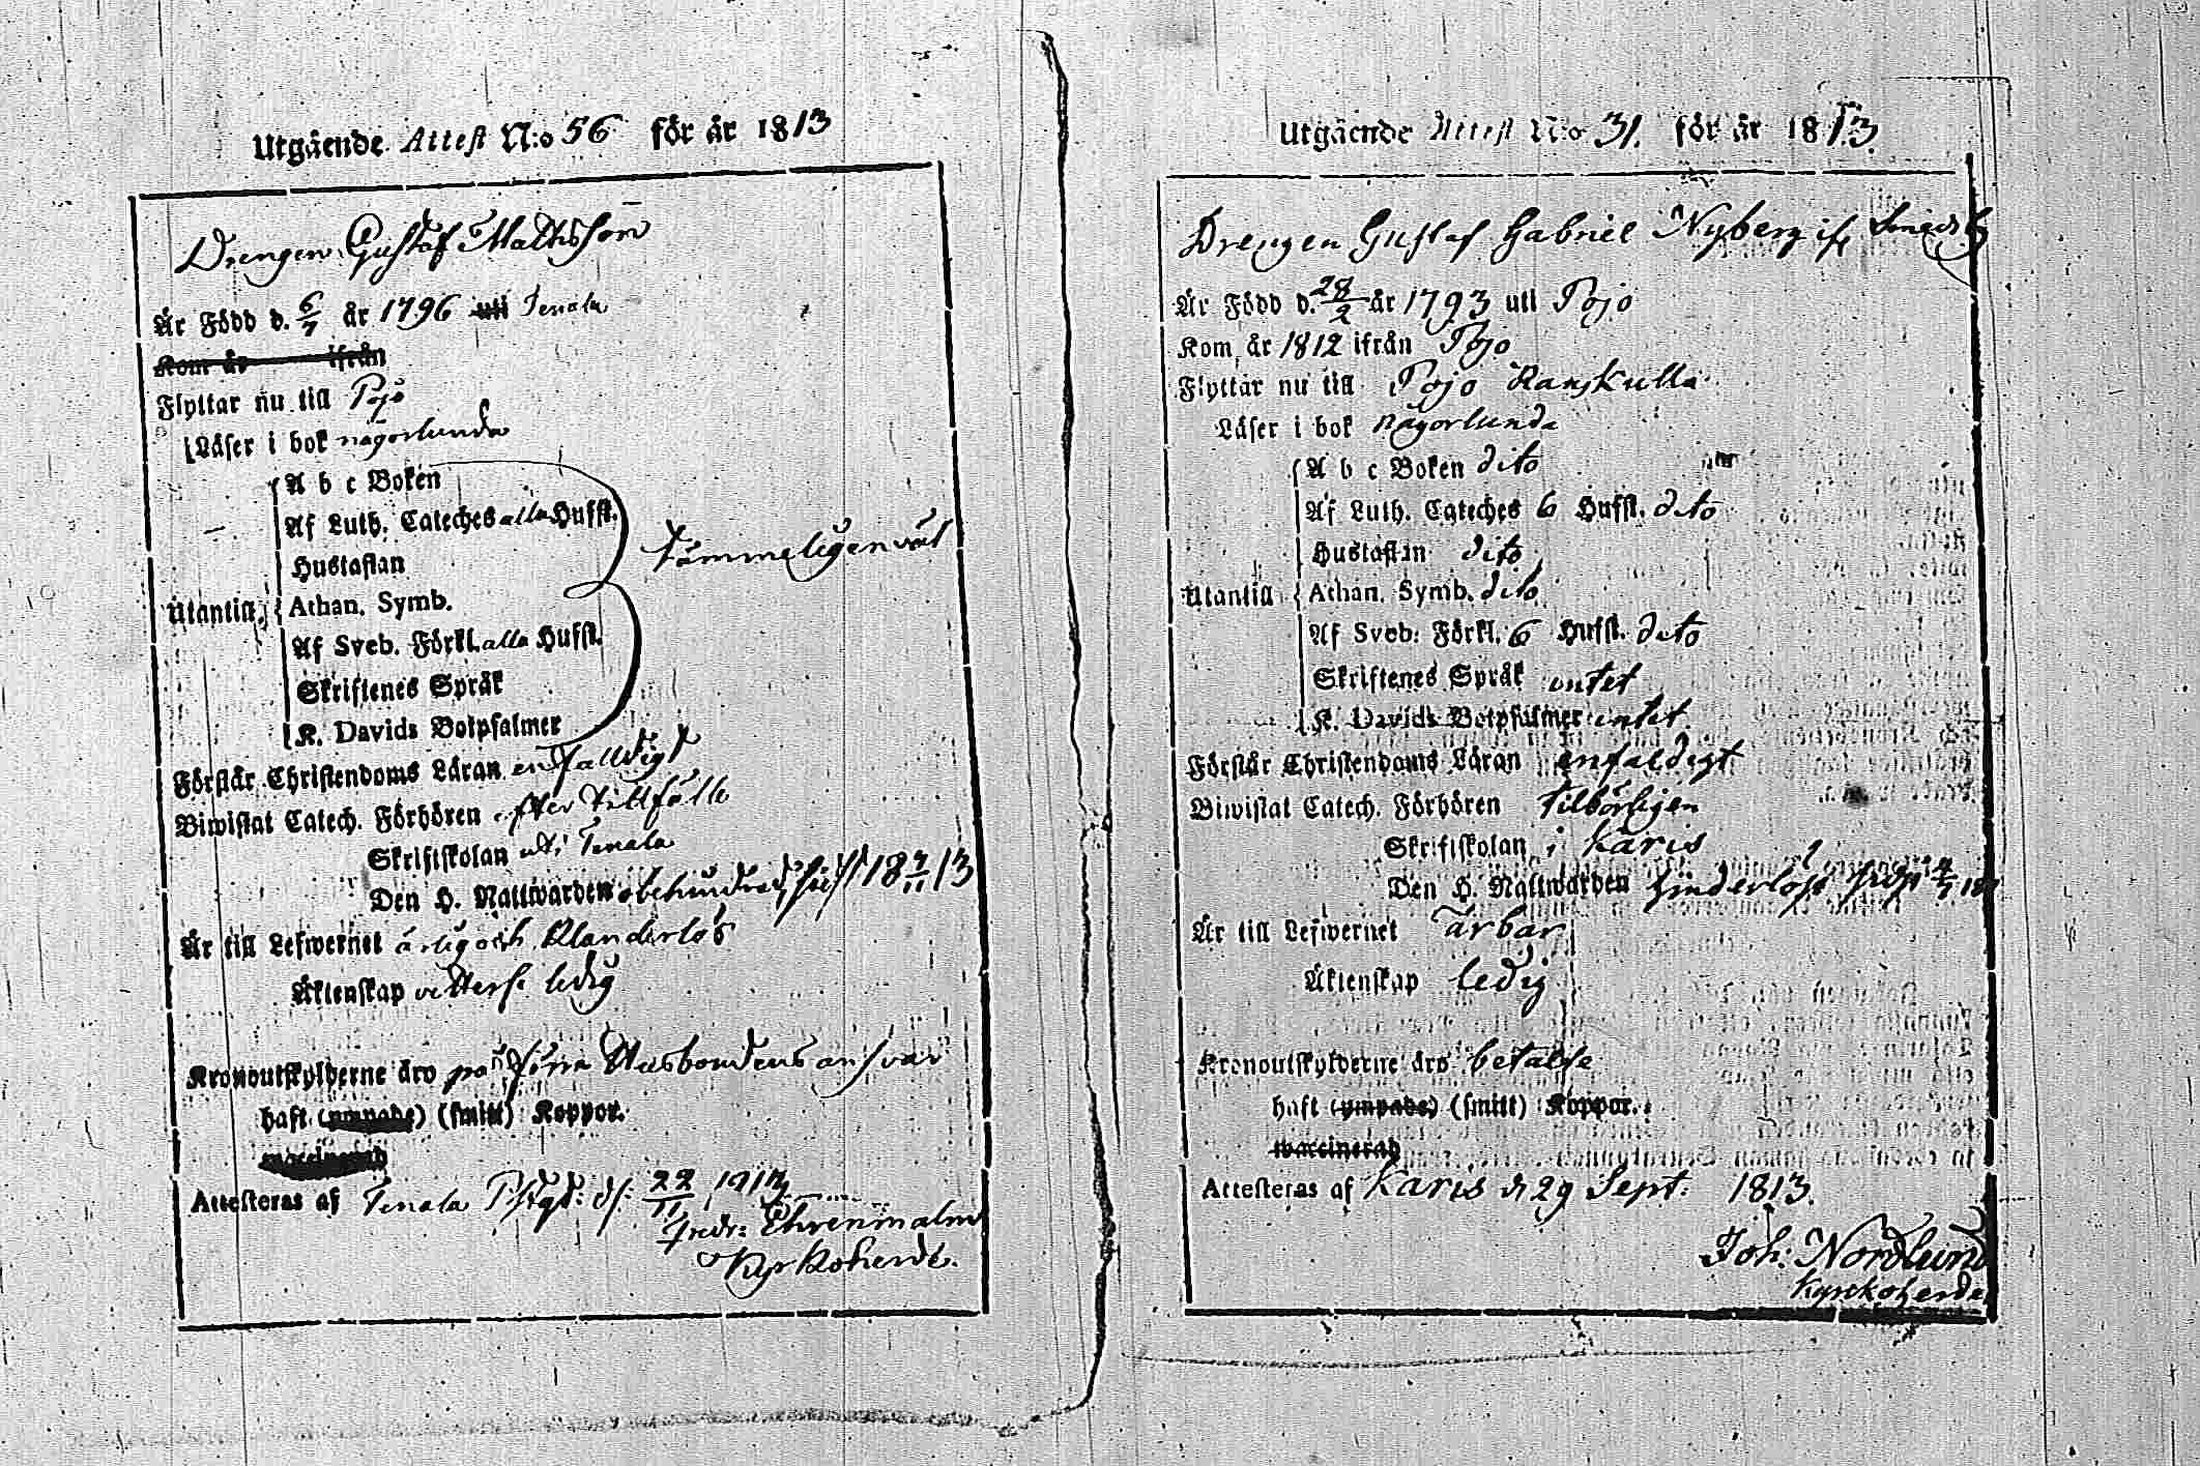 Utgående Attest N:o 56 för år 1813
Drengen Gustaf Mattsson
Är Född d. 6/7 år 1796 uti Tenala
Kom år ifrån
Flyttar nu till Pojo
Läser i bok någorlunda
A b c Boken
Af Luth. Cateches alla Hufst.
Hustaflan
tämmeligen väl
Utantill
Athan. Symb.
Af Sveb. Förkl. alla Hufst.
Skriftenes Språk
K. Davids Botpsalmer
Förstår Christendoms Läran enfalldigt
Biwistat Catech. Förhören efter tillfälle
Skriftskolan uti Tenala
Den H. Nattwarden obehindrad, sist 18 7/11 13
Är till Lefwernet ärlig och klanderlös
Äktenskap ledig
Kronoutskylderne äro på förra Husbondens ansvar
haft (ympade) (smitt) Koppor.
waccinerad
Attesteras af Tenala d. 22/11 1813
Fredr: Ehrenmalm
Kyrkoherde.
Utgående Attest N:o 31. för år 1813.
Drengen Gustaf Gabriel Nyberg ifr
Är Född d. 28/2 år 1793 uti Pojo
Kom år 1812 ifrån Pojo
Flyttar nu till Pojo Ranskulla
Läser i bok någorlunda
A b c Boken dito
Af Luth. Cateches 6 Hufst. dito
Hustaflan dito
Utantill Athan. Symb. dito
Af Sveb. Förkl. 6 Hufst. dito
Skriftenes Språk intet
K. Davids Botpsalmer intet
Förstår Christendoms Läran enfaldigt
Biwistat Catech. Förhören tilbörligen
Skriftskolan i Karis
Den H. Nattwarden hinderlöst
Är till Lefwernet ärbar
Äktenskap ledig
Kronoutskylderne äro betalde
haft (ympade) (smitt) Koppor.
waccinerad
Attesteras af Karis d 29 Sept: 1813.
Joh: Nordlund
Kyrckoherde